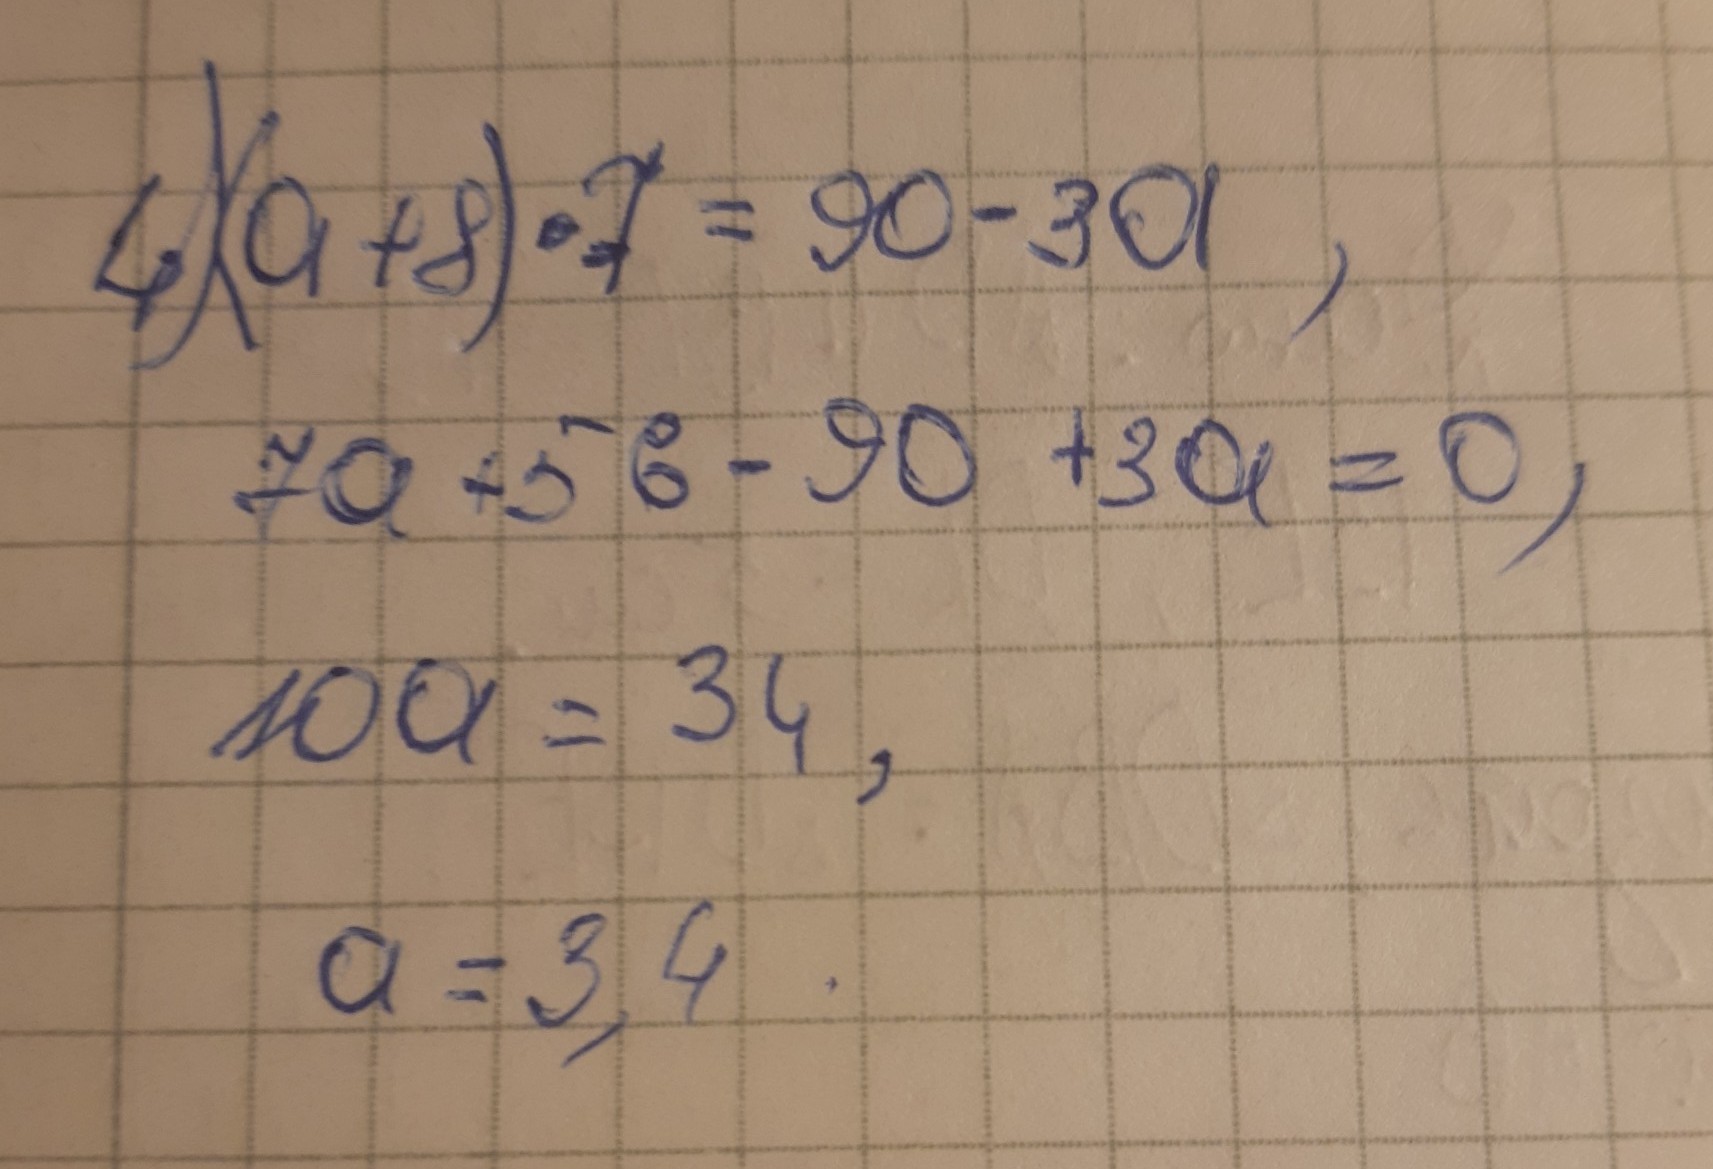 4)(a+8)·7=90-3a,
7a+56-90+3a=0,
10a=34,
a=3,4.